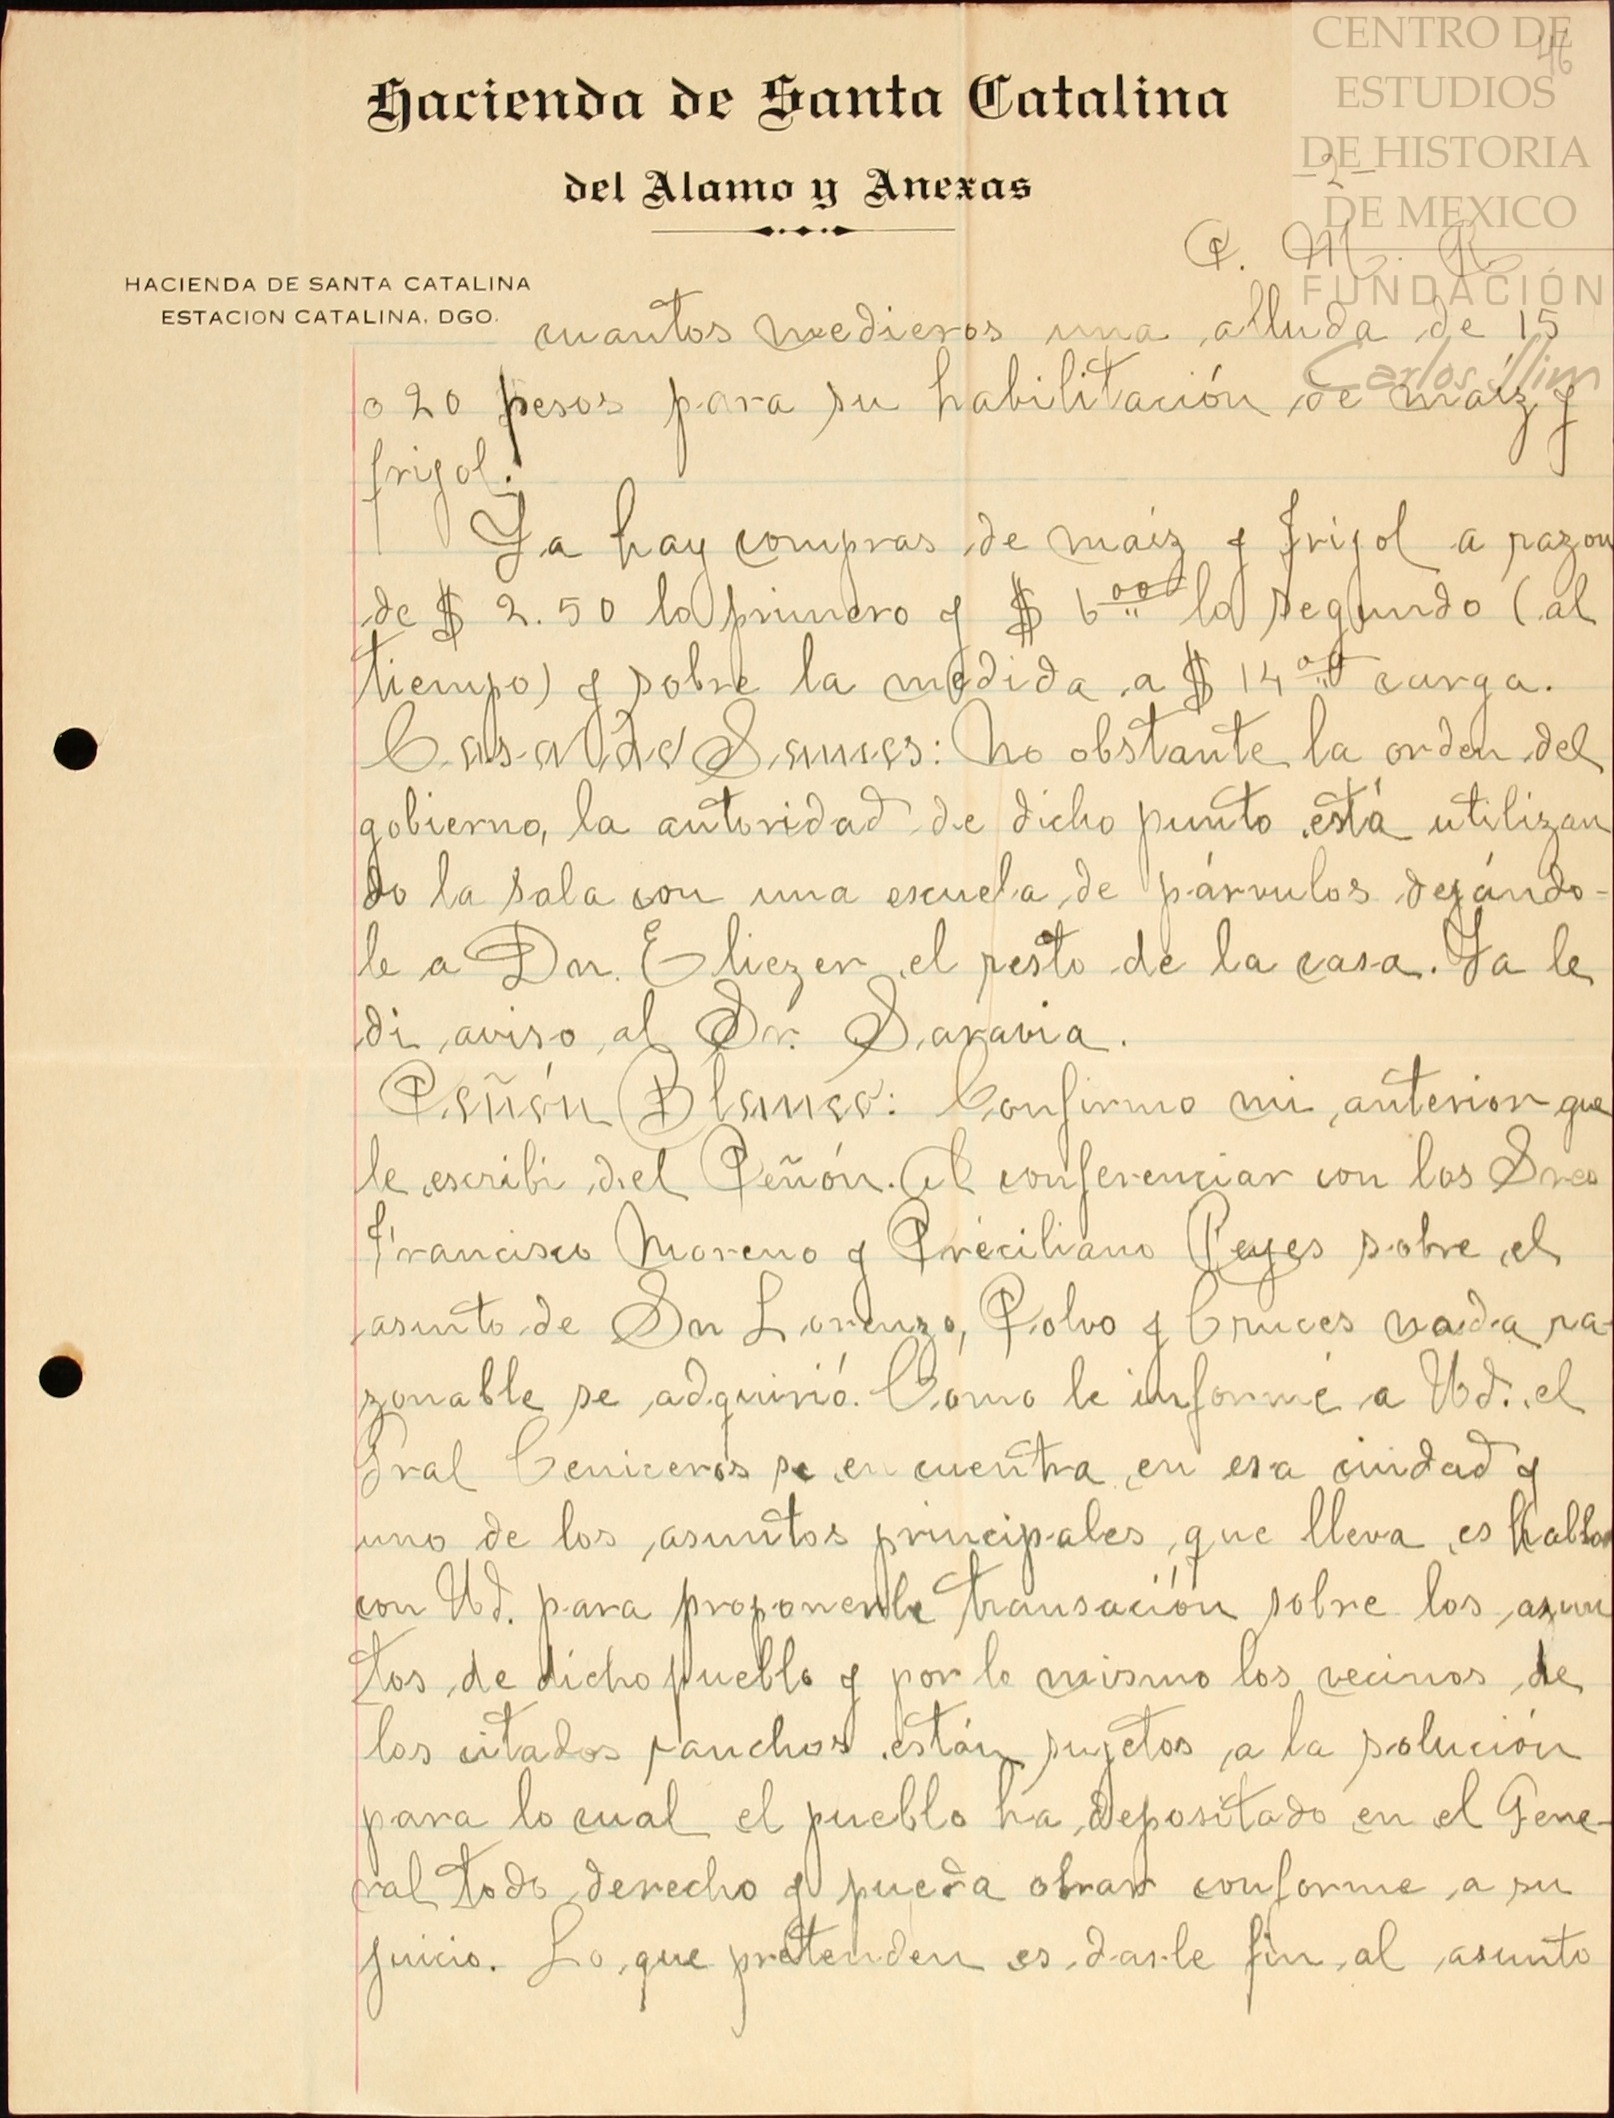 CENTRO DE
ESTUDIOS
DE HISTORIA
DE MEXICO
FUNDACIÓN
Carlos Slim
46
Hacienda de Santa Catalina
del Alamo y Anexas
-2-
P. M. R.
HACIENDA DE SANTA CATALINA
ESTACION CATALINA, DGO.
cuantos medieros una alluda de 15
o 20 pesos para su habilitación de maíz y
frijol.
Ya hay compras de maíz y frijol a razon
de $ 2.50 lo primero y $ 6.00 lo segundo (al
tiempo) y sobre la medida a $ 14.00 carga.
Casa de Sauces: No obstante la orden del
gobierno, la autoridad de dicho punto está utilizan
do la sala con una escuela de párvulos dejándo-
le a Dn. Eliezer el resto de la casa. Ya le
di aviso al Sr. Saravia.
Peñón Blanco: Confirmo mi anterior que
le escribi del Peñón. Al conferenciar con los Sres
Francisco Moreno y Préciliano Reyes sobre el
asunto de Sn Lorenzo, Polvo y Cruces nada ra-
zonable se adquirió. Cómo le informé a Ud. el
Gral Ceniceros se encuentra en esa ciudad y
uno de los asuntos principales que lleva es hablar
con Ud. para proponerle transación sobre los asun
tos de dicho pueblo y por lo mismo los vecinos de
los citados ranchos están sujetos a la solución
para lo cual el pueblo ha depositado en el Gene-
ral todo derecho y pueda obrar conforme a su
juicio. Lo que pretenden es darle fin al asunto